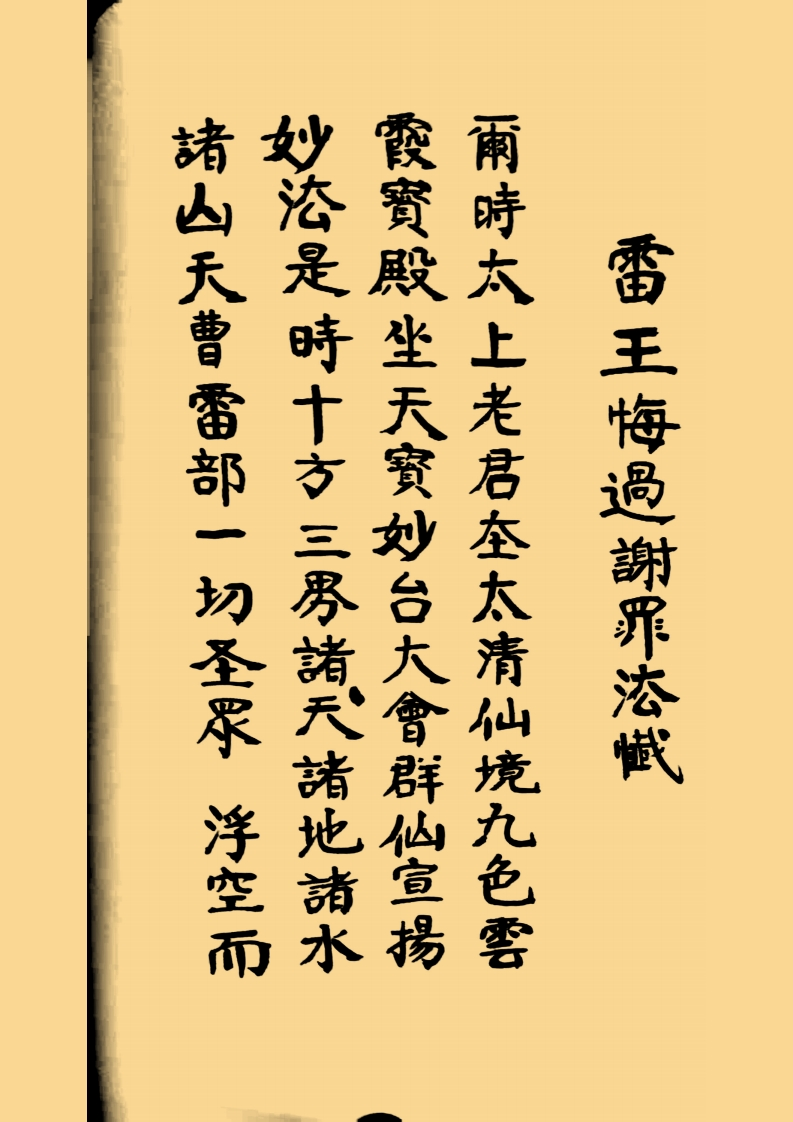 雷王悔過謝罪法懺
爾時太上老君在太清仙境九色雲
霞寶殿坐天寶妙台大會群仙宣揚
妙法是時十方三界諸天諸地諸水
諸山天曹雷部一切圣眾 浮空而